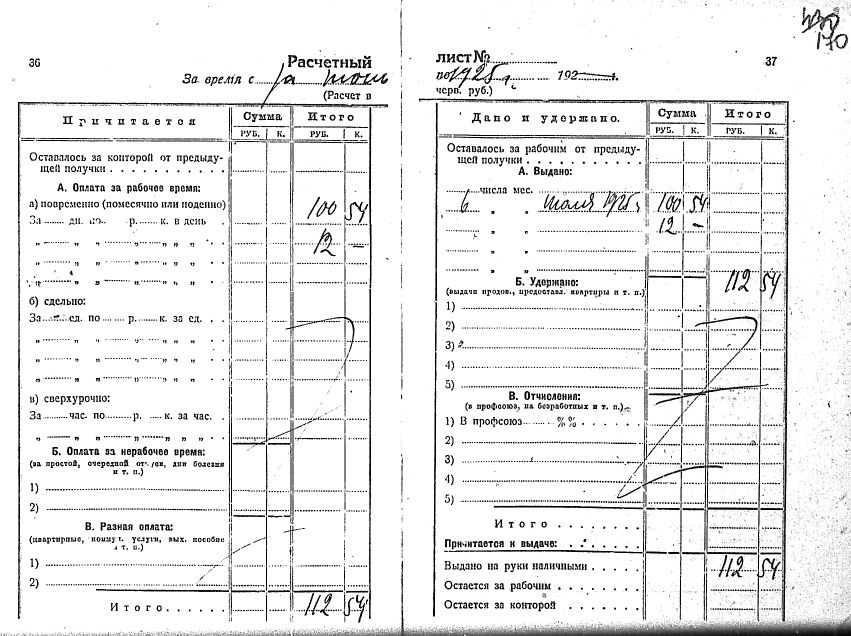 170
36
Расчетный
За время с за июль
(Расчет в
Причитается
Сумма
Итого
РУБ. К. РУБ. К.
Оставалось за конторой от предыду-
щей получки . . . . . . . . . .
А. Оплата за рабочее время:
а) повременно (помесячно или поденно) 100 54
За ...... дн. по ...... р. ...... к. в день
„ „ „ „ „ „ 12 —
„ „ „ „ „ „
„ „ „ „ „ „
б) сдельно:
За ...... ед. по ...... р. ...... к. за ед. . .
„ „ „ „ „ „
„ „ „ „ „ „
„ „ „ „ „ „
в) сверхурочно:
За ...... час. по ...... р. ...... к. за час.
„ „ „ „ „ „
Б. Оплата за нерабочее время:
(за простой, очередной отпуск, дни болезни
и т. п.)
1)
2)
В. Разная оплата:
(квартирные, коммун. услуги, вых. пособие
и т. п.)
1)
2)
Итого . . . . . . 112 54
ЛИСТ №
37
по 1925 г. 192
черв. руб.)
Дано и удержано.
Сумма
Итого
РУБ. К. РУБ. К.
Оставалось за рабочим от предыду-
щей получки . . . . . . . . . .
А. Выдано:
числа мес.
6 „ „ июля 1925 г. 100 54
„ „ 12 —
„ „
„ „
Б. Удержано: 112 54
(выдачи продов., предоставл. квартиры и т. п.)
1)
2)
3)
4)
5)
В. Отчисления:
(в профсоюз, на безработных и т. п.)
1) В профсоюз ...... %% . . . . . .
2)
3)
4)
5)
Итого . . . . . . .
Причитается к выдаче: . . . . . .
Выдано на руки наличными . . . . . 112 54
Остается за рабочим . . . . . . .
Остается за конторой . . . . . . .